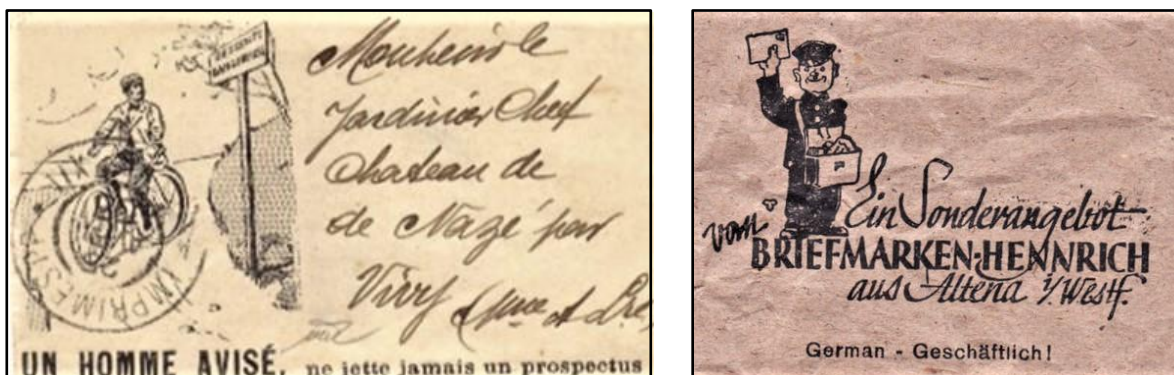 DESCENTE
DANGEREUSE
Monsieur le
Jardinier Chef
Chateau de
de Nazé par
Vivy
IMPRIMES PARIS
UN HOMME AVISÉ, ne jette jamais un prospectus
Ein Sonderangebot
von
BRIEFMARKEN-HENNRICH
aus Altena i/Westf.
German - Geschäftlich!